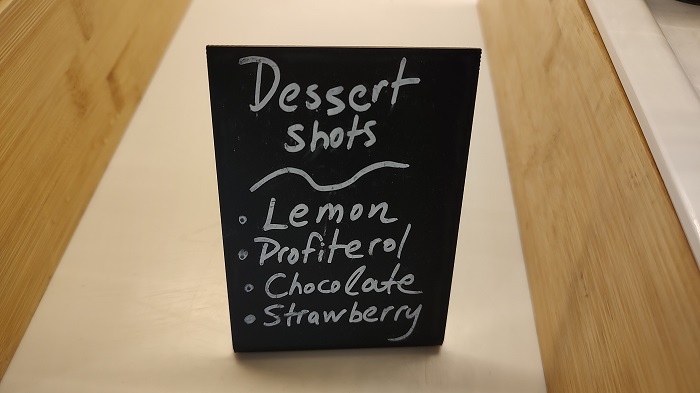 Dessert
shots
• Lemon
• Profiterol
• Chocolate
• Strawberry